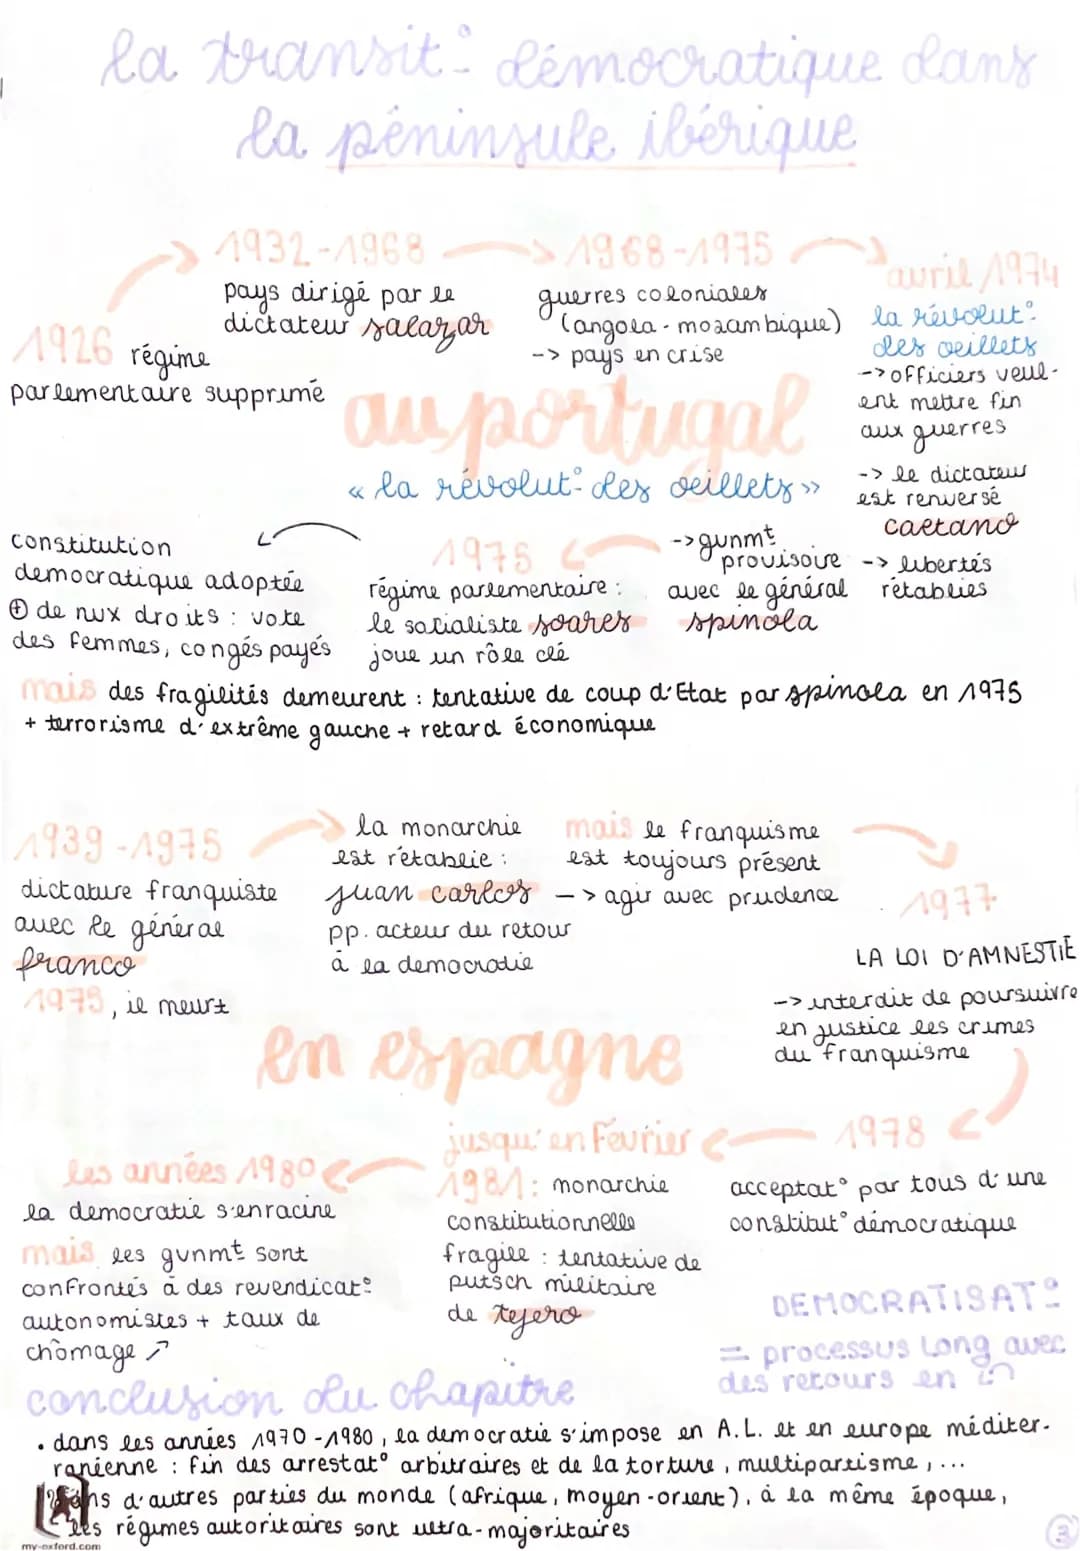 la transit° démocratique dans
la péninsule ibérique
1926 régime
parlementaire supprimé
1932-1968
pays dirigé par le
dictateur salazar
1968-1975
guerres coloniales
(angola - mozambique)
-> pays en crise
avril 1974
la révolut°
des oeillets
-> officiers veul-
ent mettre fin
aux guerres
-> le dictateur
est renversé
caetano
-> libertés
rétablies
au portugal
« la révolut° des oeillets »
-> gvnmt
provisoire
avec le général
spinola
1975
régime parlementaire :
le socialiste soares
joue un rôle clé
constitution
democratique adoptée
⊕ de nvx droits : vote
des femmes, congés payés
mais des fragilités demeurent : tentative de coup d'Etat par spinola en 1975
+ terrorisme d'extrême gauche + retard économique
1939-1975
dictature franquiste
avec le général
franco
1975, il meurt
la monarchie
est rétablie :
juan carlos
pp. acteur du retour
à la democratie
mais le franquisme
est toujours présent
-> agir avec prudence
1977
LA LOI D'AMNESTIE
-> interdit de poursuivre
en justice les crimes
du franquisme
en espagne
1978
acceptat° par tous d'une
constitut° démocratique
jusqu'en février
1981 : monarchie
constitutionnelle
fragile : tentative de
putsch militaire
de tejero
les années 1980
la democratie s'enracine
mais les gvnmt sont
confrontés à des revendicat°
autonomistes + taux de
chômage ↗
DEMOCRATISAT°
= processus long avec
des retours en
conclusion du chapitre
• dans les années 1970-1980, la democratie s'impose en A.L. et en europe méditer-
ranienne : fin des arrestat° arbitraires et de la torture, multipartisme, ...
dans d'autres parties du monde (afrique, moyen-orient), à la même époque,
les régimes autoritaires sont ultra-majoritaires
my-oxford.com
3